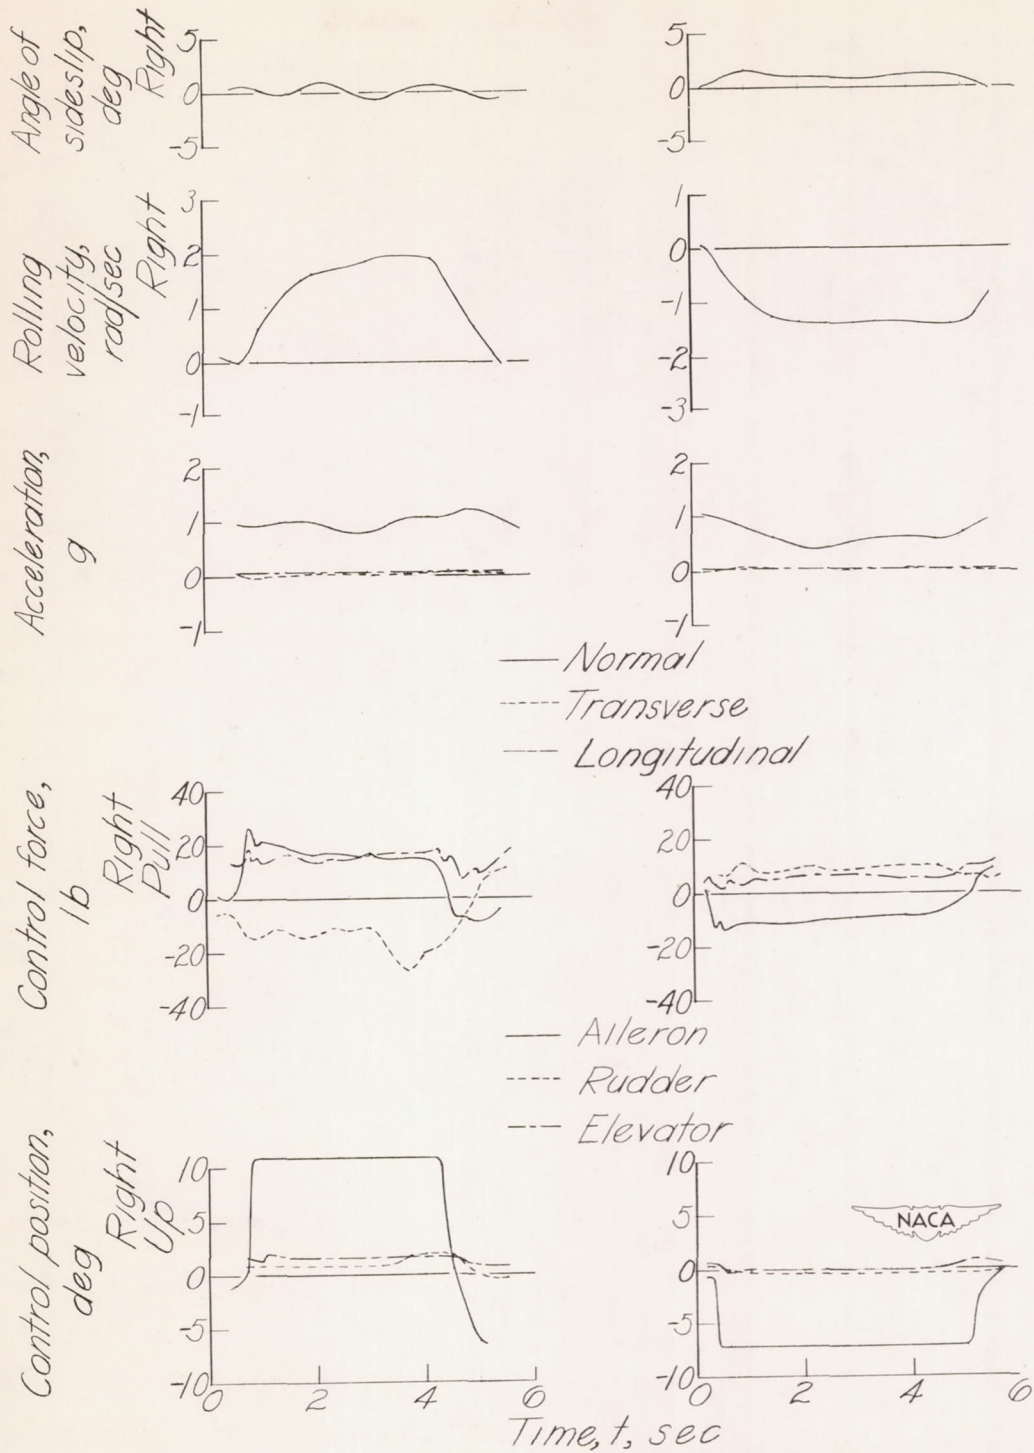 Angle of
sideslip,
deg
Right
5
0
-5
5
0
-5
Rolling
velocity,
rad/sec
Right
3
2
1
0
-1
1
0
-1
-2
-3
Acceleration,
g
2
1
0
-1
2
1
0
-1
Normal
Transverse
Longitudinal
Control force,
lb
Right
Pull
40
20
0
-20
-40
40
20
0
-20
-40
Aileron
Rudder
Elevator
Control position,
deg
Right
Up
10
5
0
-5
-10
0 2 4 6
10
5
0
-5
-10
0 2 4 6
NACA
Time, t, sec